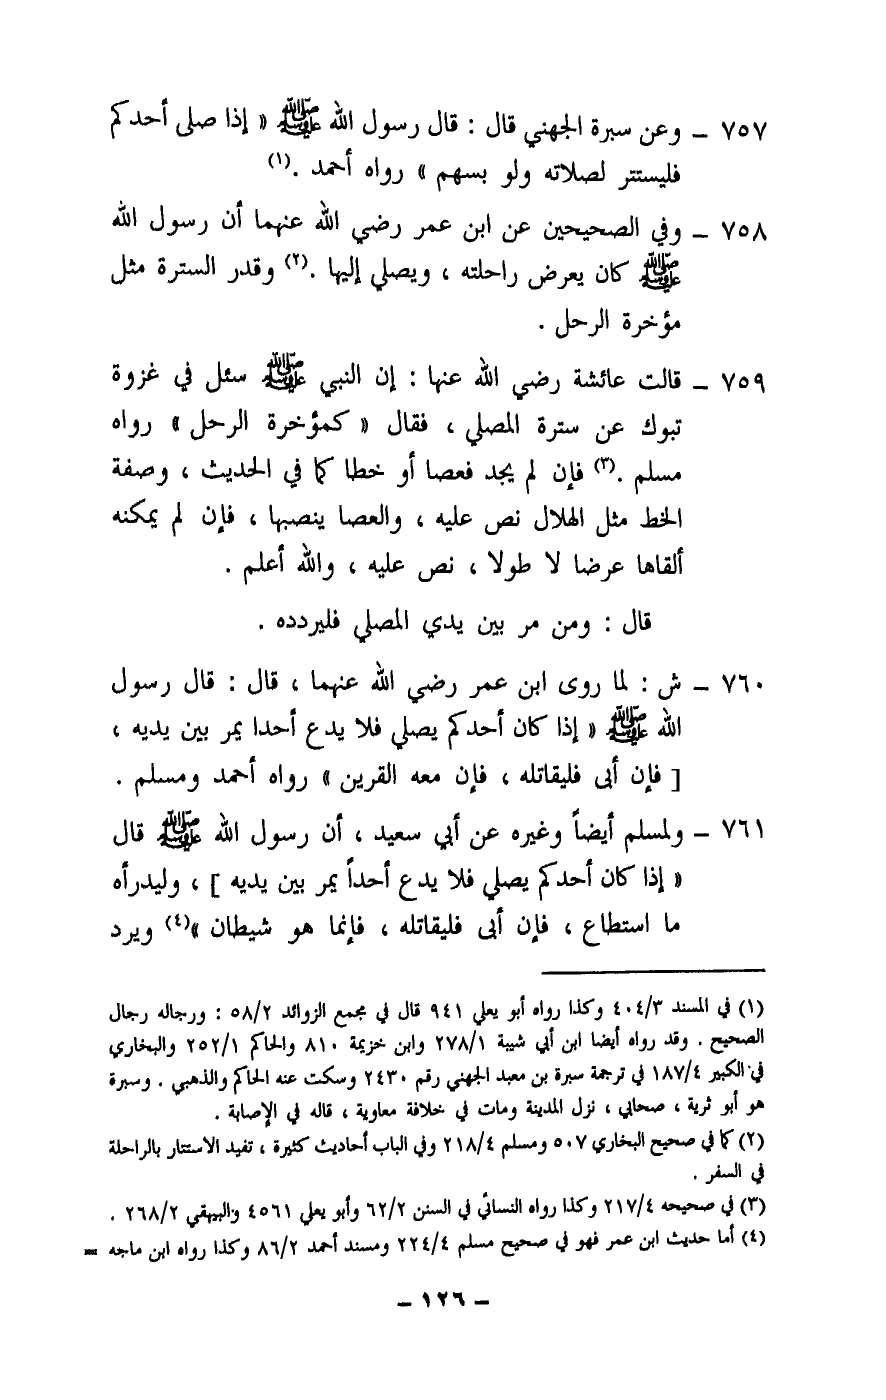 ٧٥٧ ــ وعن سبرة الجهني قال : قال رسول الله ﷺ « إذا صلى أحدكم
فليستتر لصلاته ولو بسهم » رواه أحمد .(١)
٧٥٨ ــ وفي الصحيحين عن ابن عمر رضي الله عنهما أن رسول الله
ﷺ كان يعرض راحلته ، ويصلي إليها .(٢) وقدر السترة مثل
مؤخرة الرحل .
٧٥٩ ــ قالت عائشة رضي الله عنها : إن النبي ﷺ سئل في غزوة
تبوك عن سترة المصلي ، فقال « كمؤخرة الرحل » رواه
مسلم .(٣) فإن لم يجد فعصا أو خطا كما في الحديث ، وصفة
الخط مثل الهلال نص عليه ، والعصا ينصبها ، فإن لم يمكنه
ألقاها عرضا لا طولا ، نص عليه ، والله أعلم .
قال : ومن مر بين يدي المصلي فليردده .
٧٦٠ ــ ش : لما روى ابن عمر رضي الله عنهما ، قال : قال رسول
الله ﷺ « إذا كان أحدكم يصلي فلا يدع أحدا يمر بين يديه ،
[ فإن أبى فليقاتله ، فإن معه القرين » رواه أحمد ومسلم .
٧٦١ ــ ولمسلم أيضاً وغيره عن أبي سعيد ، أن رسول الله ﷺ قال
« إذا كان أحدكم يصلي فلا يدع أحداً يمر بين يديه ] ، وليدرأه
ما استطاع ، فإن أبى فليقاتله ، فإنما هو شيطان »(٤) ويرد
(١) في المسند ٤٠٤/٣ وكذا رواه أبو يعلي ٩٤١ قال في مجمع الزوائد ٥٨/٢ : ورجاله رجال
الصحيح . وقد رواه أيضا ابن أبي شيبة ٢٧٨/١ وابن خزيمة ٨١٠ والحاكم ٢٥٢/١ والبخاري
في الكبير ١٨٧/٤ في ترجمة سبرة بن معبد الجهني رقم ٢٤٣٠ وسكت عنه الحاكم والذهبي . وسبرة
هو أبو ثرية ، صحابي ، نزل المدينة ومات في خلافة معاوية ، قاله في الإصابة .
(٢) كما في صحيح البخاري ٥٠٧ ومسلم ٢١٨/٤ وفي الباب أحاديث كثيرة ، تفيد الاستتار بالراحلة
في السفر .
(٣) في صحيحه ٢١٧/٤ وكذا رواه النسائي في السنن ٦٢/٢ وأبو يعلي ٤٥٦١ والبيهقي ٢٦٨/٢ .
(٤) أما حديث ابن عمر فهو في صحيح مسلم ٢٢٤/٤ ومسند أحمد ٨٦/٢ وكذا رواه ابن ماجه =
ــ ١٢٦ ــ